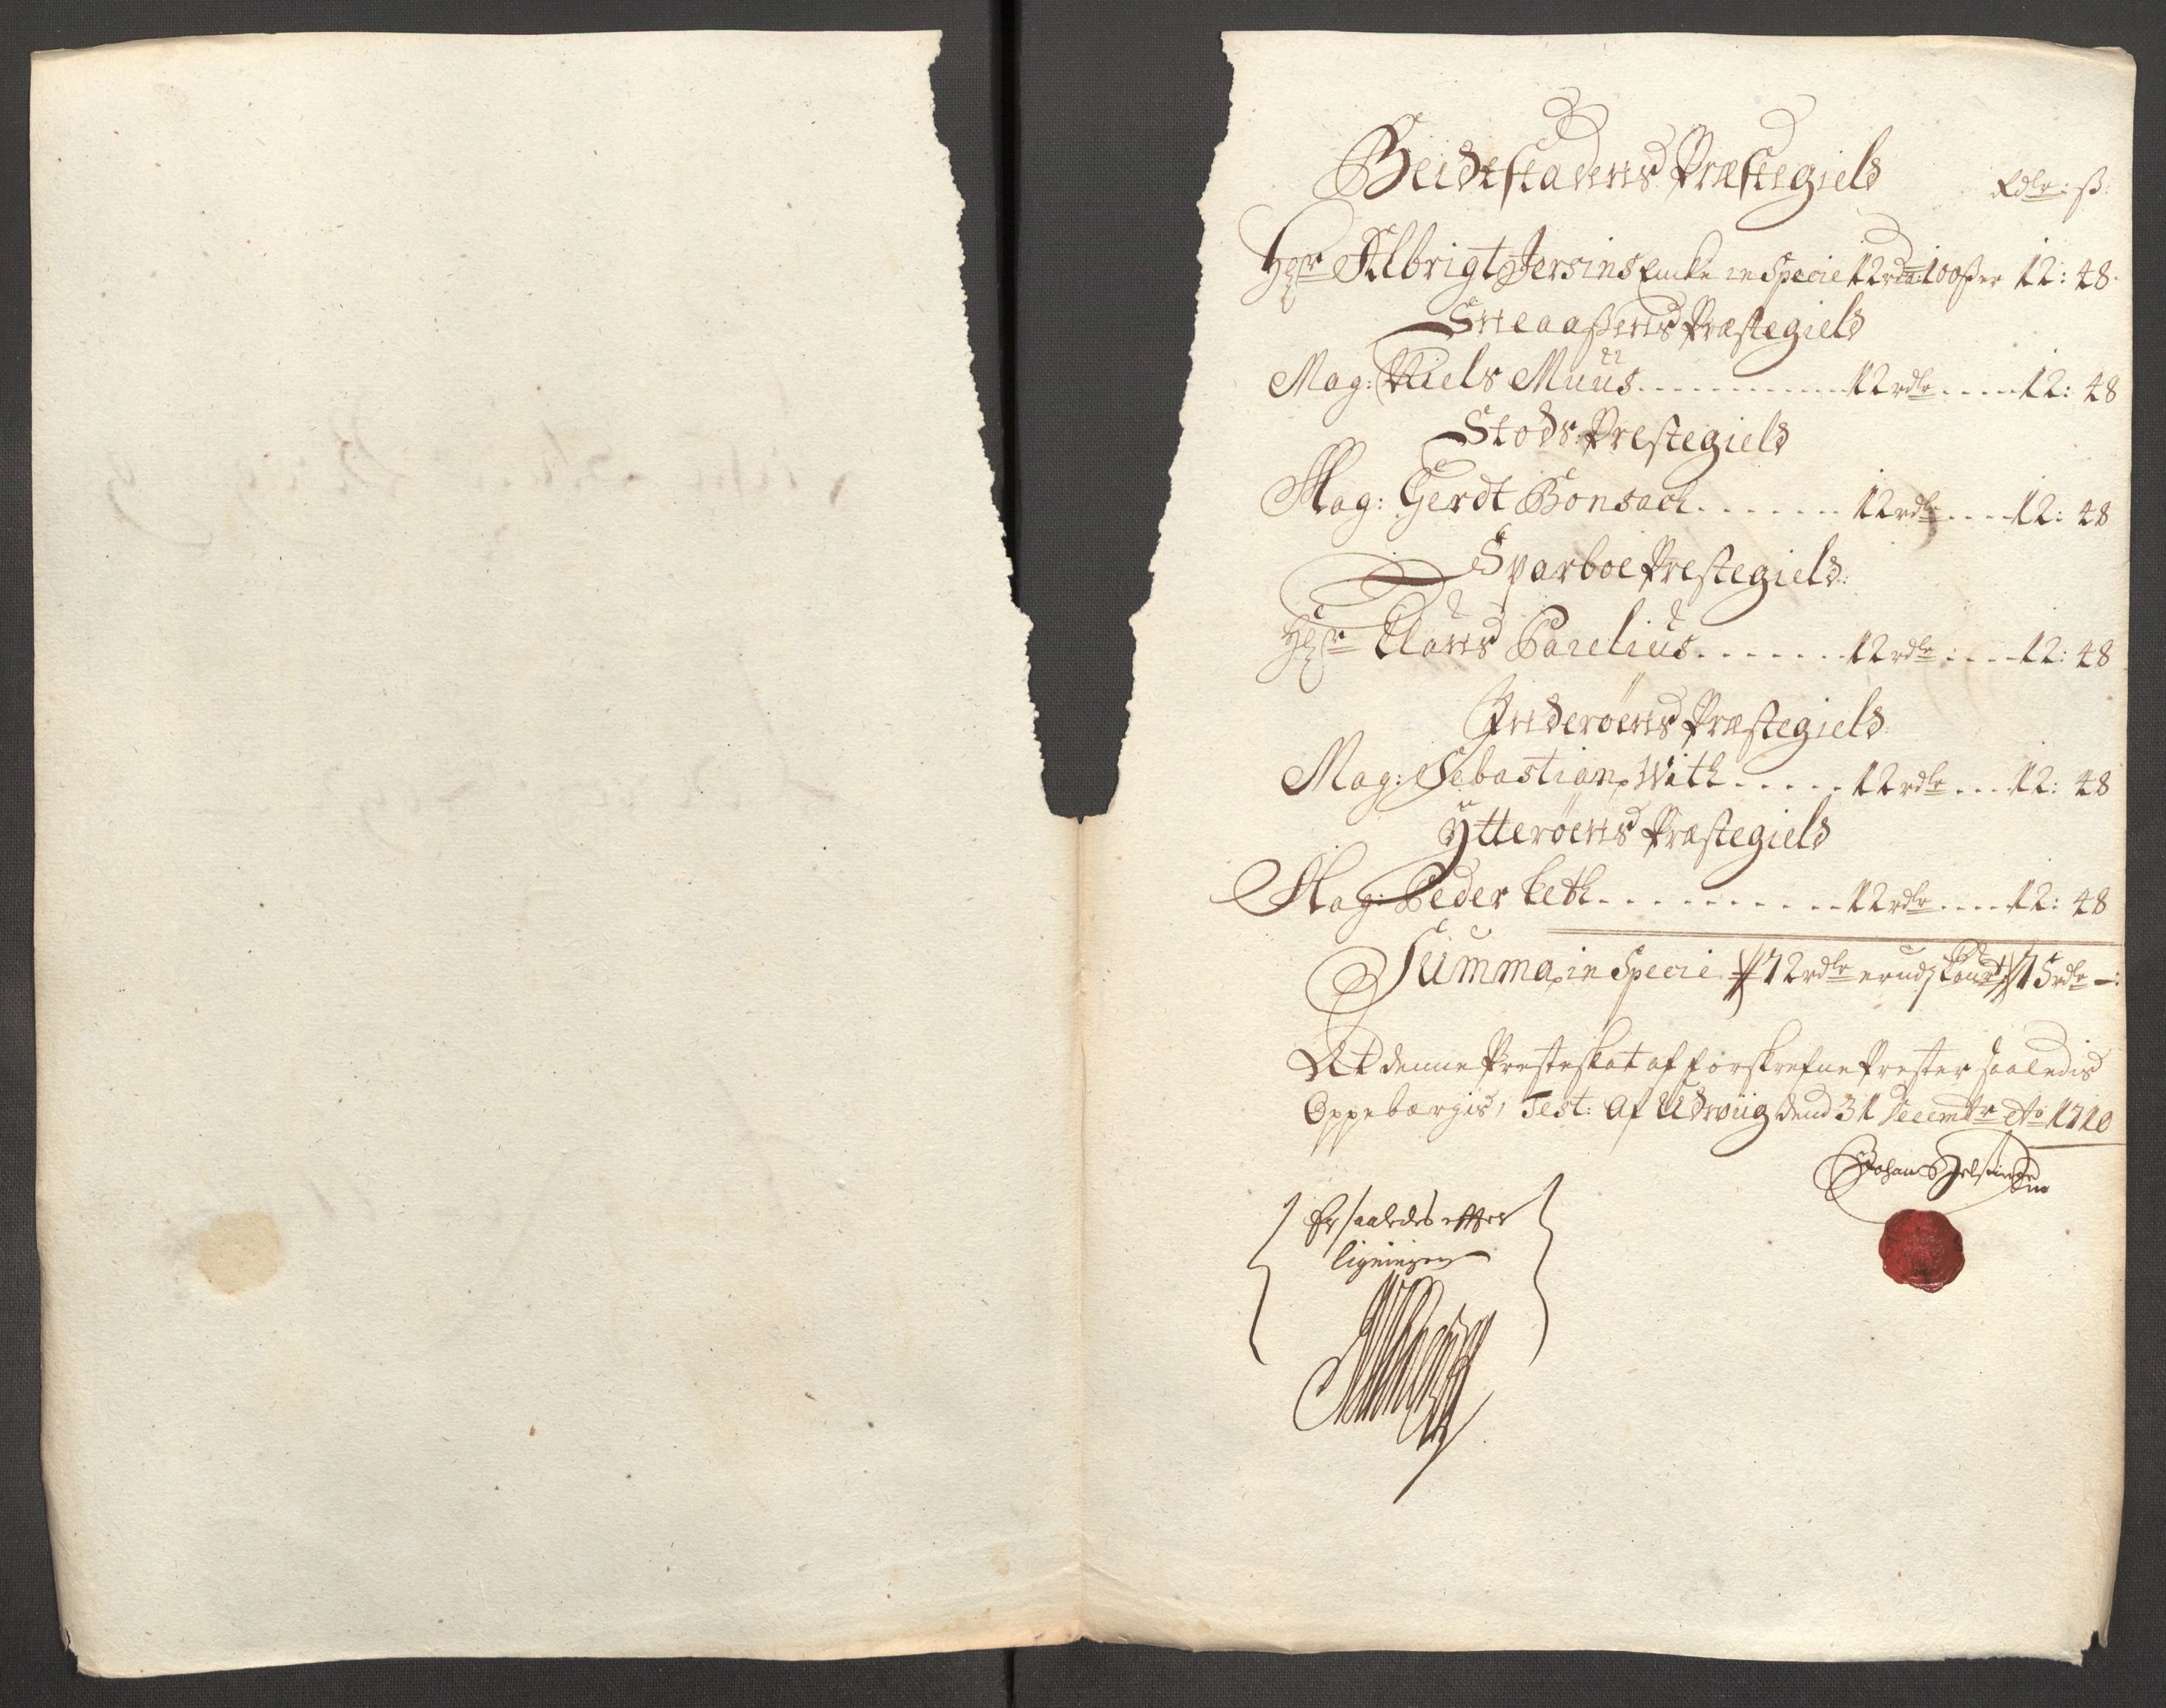 Beidestadens Præstegield
Rdlr: ß:
Hr Albrigt Jersins Encke in Specie 12 rdr: 100 ß er 12: 48.
Sneaaßens Præstegield
Mag: Niels Muus 12 rdlr 12: 48
Stods Prestegield
Mag: Gerdt Bonsach 12 rdlr 12: 48
Sparboe Prestegield:
Hr Claus Parelius 12 rdlr 12: 48
Inderøens Præstegield
Mag: Sebastian With 12 rdlr 12: 48
Ytterøens Præstegield
Mag: Peder Leth 12 rdlr 12: 48
Summa in Specie 72 rdlr er udj Courr 75 rdlr -:
At denne Presteskat af forskrefne Prester saaledis
Oppebærgis, Test: Af Udwiig dend 31 Decembr Ao 1710
Johan
Er saaledes efter
ligningen